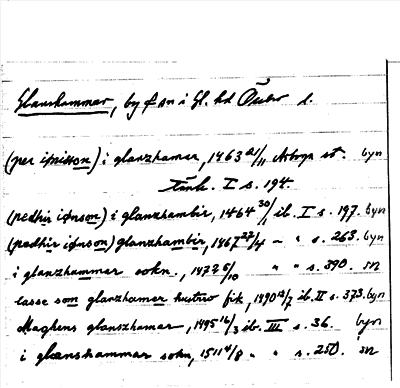 Glanshammar, by o sn i Gl. hd Örebro l.
(per iönisson) i glanzhamar, 1463 21/11 Arboga st. byn
tänk. I s. 194.
(pedhir iönson) i glanzhambir, 1464 30/1 ib. I s. 197. byn
(pedhir iönson) glanzhambir, 1467 27/4 – " s. 263. byn
i glanzhammar sokn., 1472 5/10 " " s. 390. sn
lasse som glanzhamar hustrw fik, 1490 12/7 ib. II s. 373. byn
Maghens glanszhamar, 1495 16/3 ib. III s. 36. byn
i glanshammar sokn, 1511 4/8 " " s. 250. sn